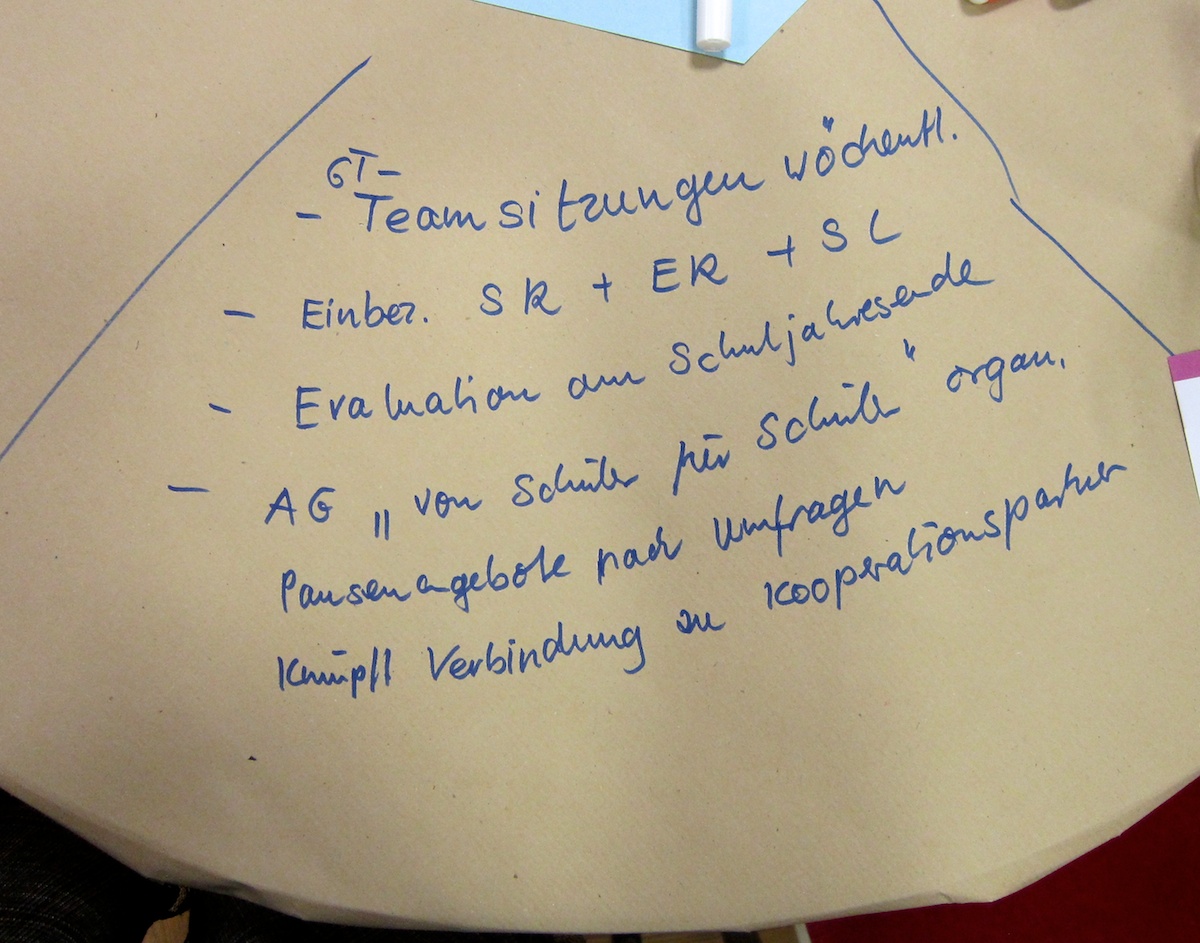 GT-
- Teamsitzungen wöchentl.
- Einbez. SR + ER + SL
- Evaluation am Schuljahresende
- AG „von Schüler für Schüler" organ.
Pausenangebote nach Umfragen
Knüpft Verbindung zu Kooperationspartner